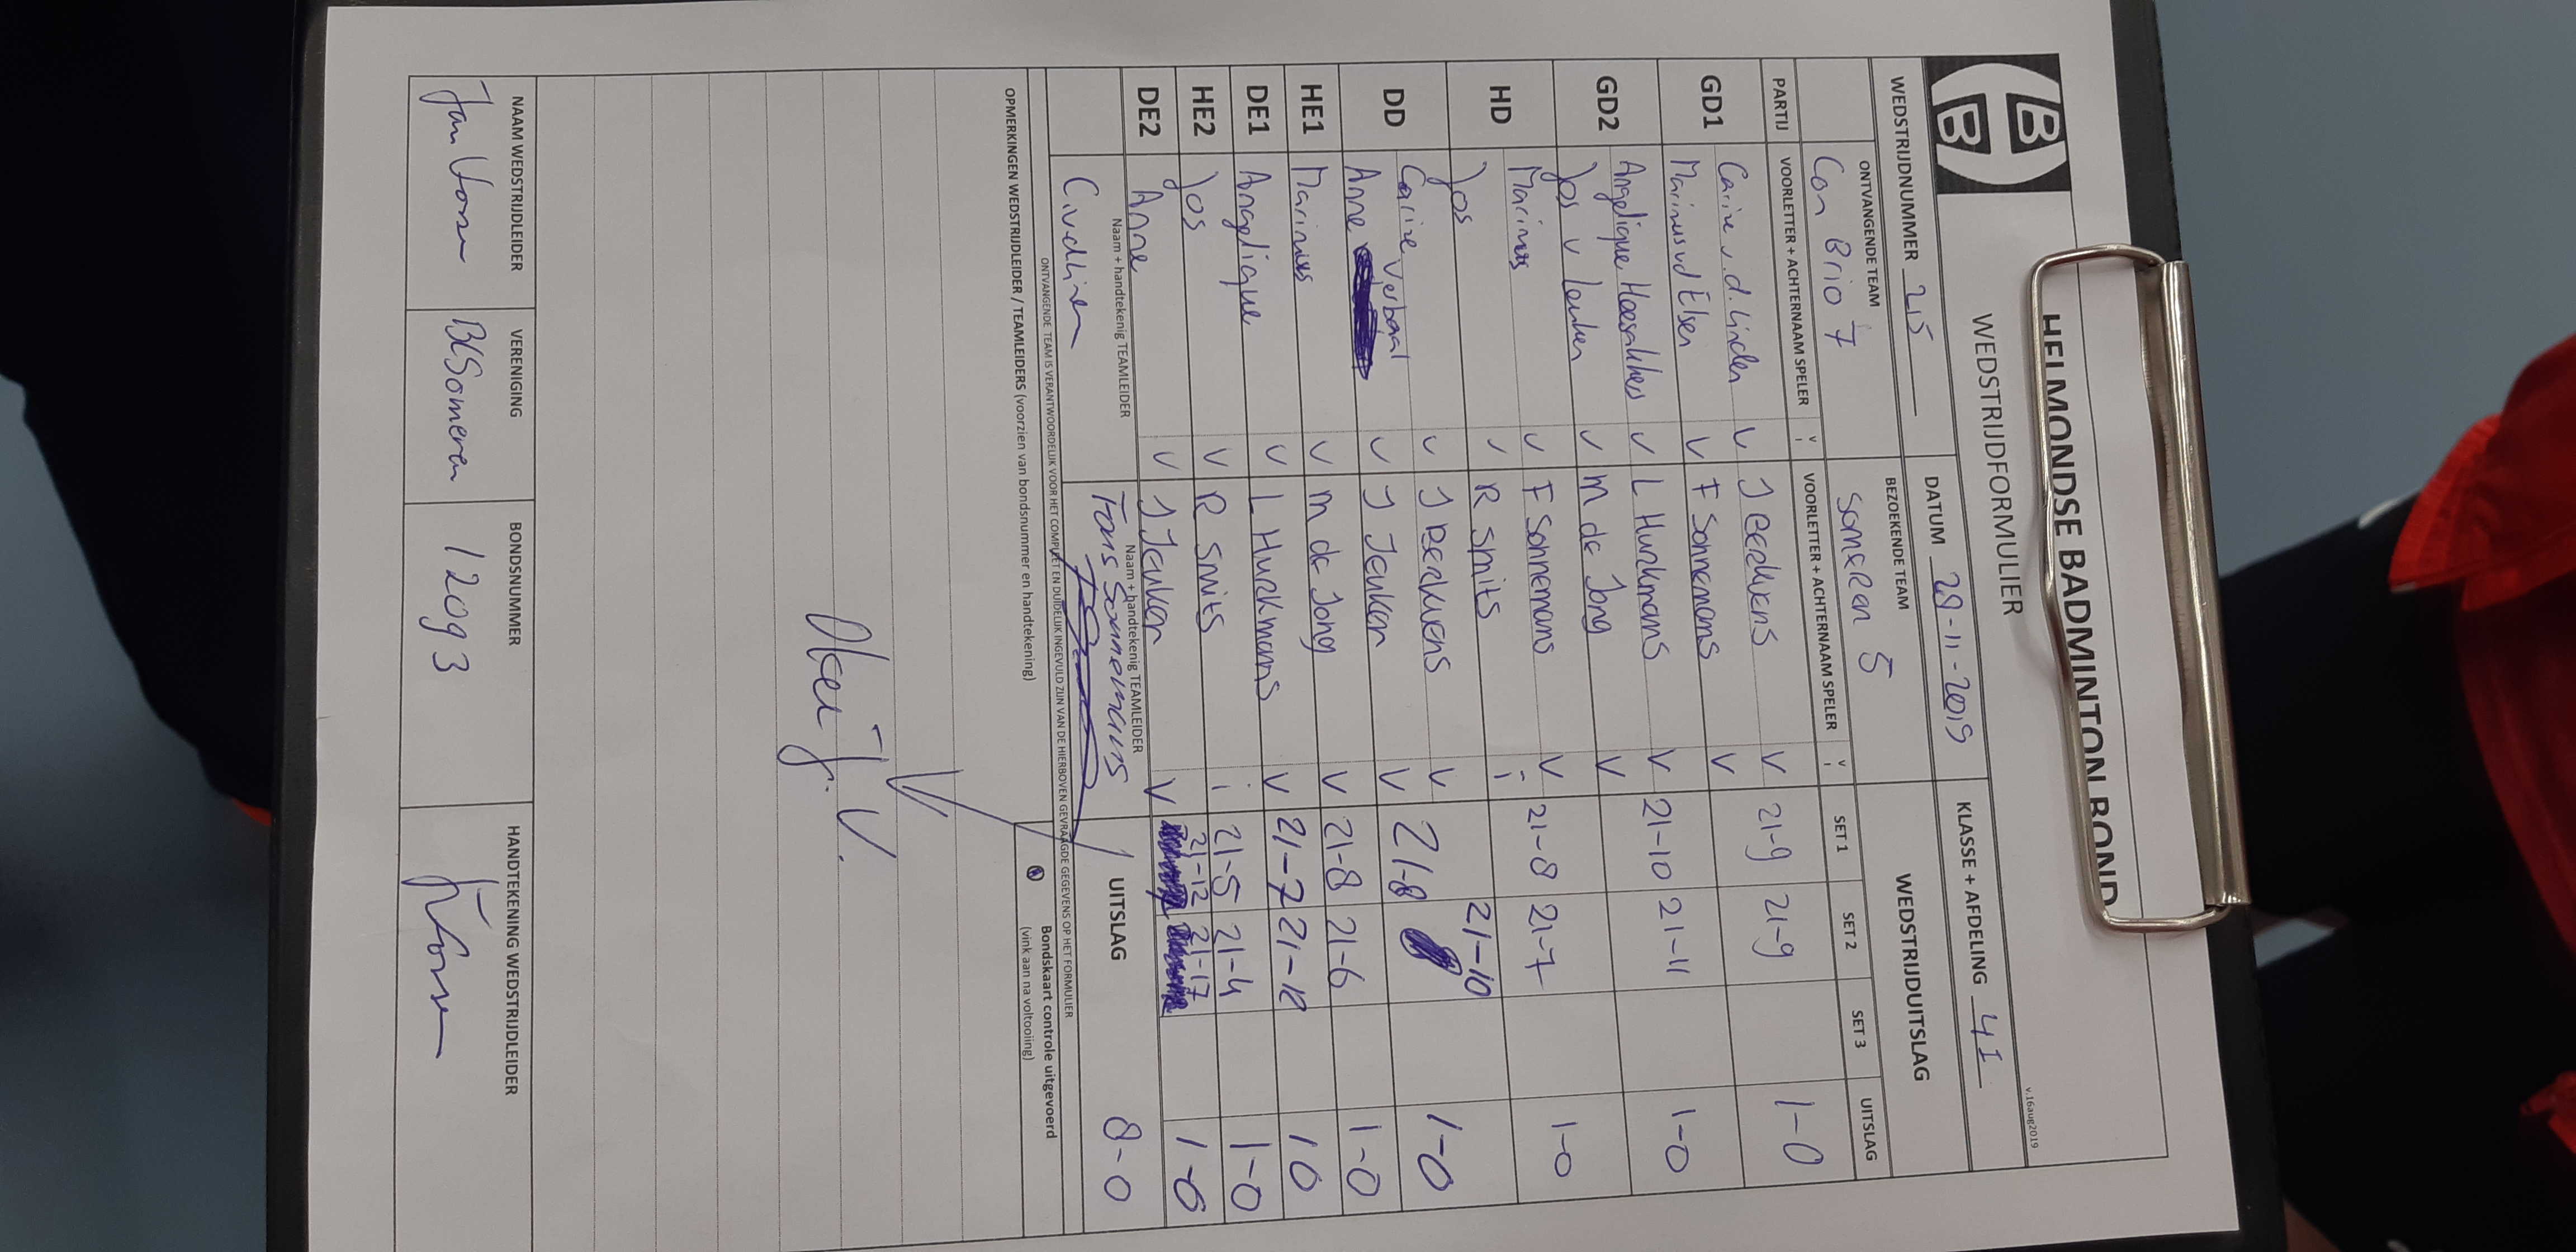 HELMONDSE BADMINTON BOND
WEDSTRIJDFORMULIER
v.16aug2019
WEDSTRIJDNUMMER 215 DATUM 28-11-2019 KLASSE + AFDELING 4I
ONTVANGENDE TEAM BEZOEKENDE TEAM WEDSTRIJDUITSLAG
Con Brio 7 Someren 5
PARTIJ VOORLETTER + ACHTERNAAM SPELER V i VOORLETTER + ACHTERNAAM SPELER V i SET 1 SET 2 SET 3 UITSLAG
GD1 Carine v.d. Linden V J Beekvens V 21-9 21-9 1-0
Marinus vd Elsen V F Sonnemans V
GD2 Angelique Hoesakkers V L Hurkmans V 21-10 21-11 1-0
Jos v V M de Jong V
HD Marinus V F Sonnemans V 21-8 21-7 1-0
Jos V R Smits i
DD Carine Verbaal V J Beekvens V 21-8 21-10 1-0
Anne V J Jenken V
HE1 Marinus V M de Jong V 21-8 21-6 1-0
DE1 Angelique V L Hurkmans V 21-7 21-18 1 0
HE2 Jos V R Smits i 21-5 21-4 1-0
DE2 Anne V J Jenken V 21-12 21-17 1-0
Naam + handtekenig TEAMLEIDER Naam + handtekenig TEAMLEIDER UITSLAG 8-0
Frans Sonnemans
ONTVANGENDE TEAM IS VERANTWOORDELIJK VOOR HET COMPLEET EN DUIDELIJK INGEVULD ZIJN VAN DE HIERBOVEN GEVRAAGDE GEGEVENS OP HET FORMULIER
OPMERKINGEN WEDSTRIJDLEIDER / TEAMLEIDERS (voorzien van bondsnummer en handtekening)
Bondskaart controle uitgevoerd
(vink aan na voltooiing)
NAAM WEDSTRIJDLEIDER VERENIGING BONDSNUMMER HANDTEKENING WEDSTRIJDLEIDER
Jan Vossen BCSomeren 12093